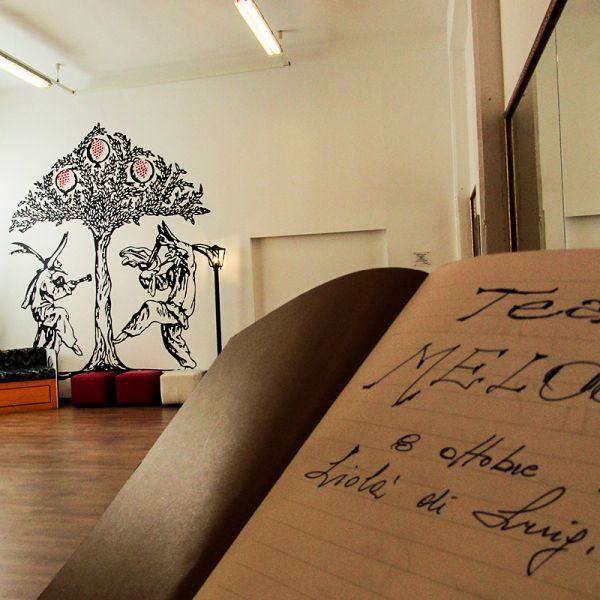 Tea
MELO
8 ottobre
Liolà di Luig